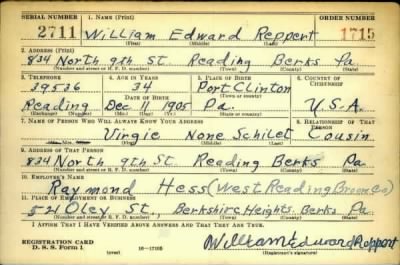 SERIAL NUMBER 1. NAME (Print) ORDER NUMBER
2711 William Edward Reppert 1715
(First) (Middle) (Last)
2. ADDRESS (Print)
834 North 9th St. Reading Berks Pa.
(Number and street or R. F. D. number) (Town) (County) (State)
3. TELEPHONE 4. AGE IN YEARS 5. PLACE OF BIRTH 6. COUNTRY OF CITIZENSHIP
39536 34 Port Clinton
DATE OF BIRTH (Town or county)
Reading Dec 11 1905 Pa. U.S.A.
(Exchange) (Number) (Mo.) (Day) (Yr.) (State or country)
7. NAME OF PERSON WHO WILL ALWAYS KNOW YOUR ADDRESS 8. RELATIONSHIP OF THAT PERSON
Virgie None Schilet Cousin
(First) (Middle) (Last)
9. ADDRESS OF THAT PERSON
834 North 9th St Reading Berks Pa.
(Number and street or R. F. D. number) (Town) (County) (State)
10. EMPLOYER'S NAME
Raymond Hess (West Reading Broom Co)
11. PLACE OF EMPLOYMENT OR BUSINESS
521 Oley St, Berkshire Heights. Berks Pa.
(Number and street or R. F. D. number) (Town) (County) (State)
I AFFIRM THAT I HAVE VERIFIED ABOVE ANSWERS AND THAT THEY ARE TRUE.
REGISTRATION CARD
D. S. S. FORM 1 (over) 16—17105 William Edward Reppert
(Registrant's signature)